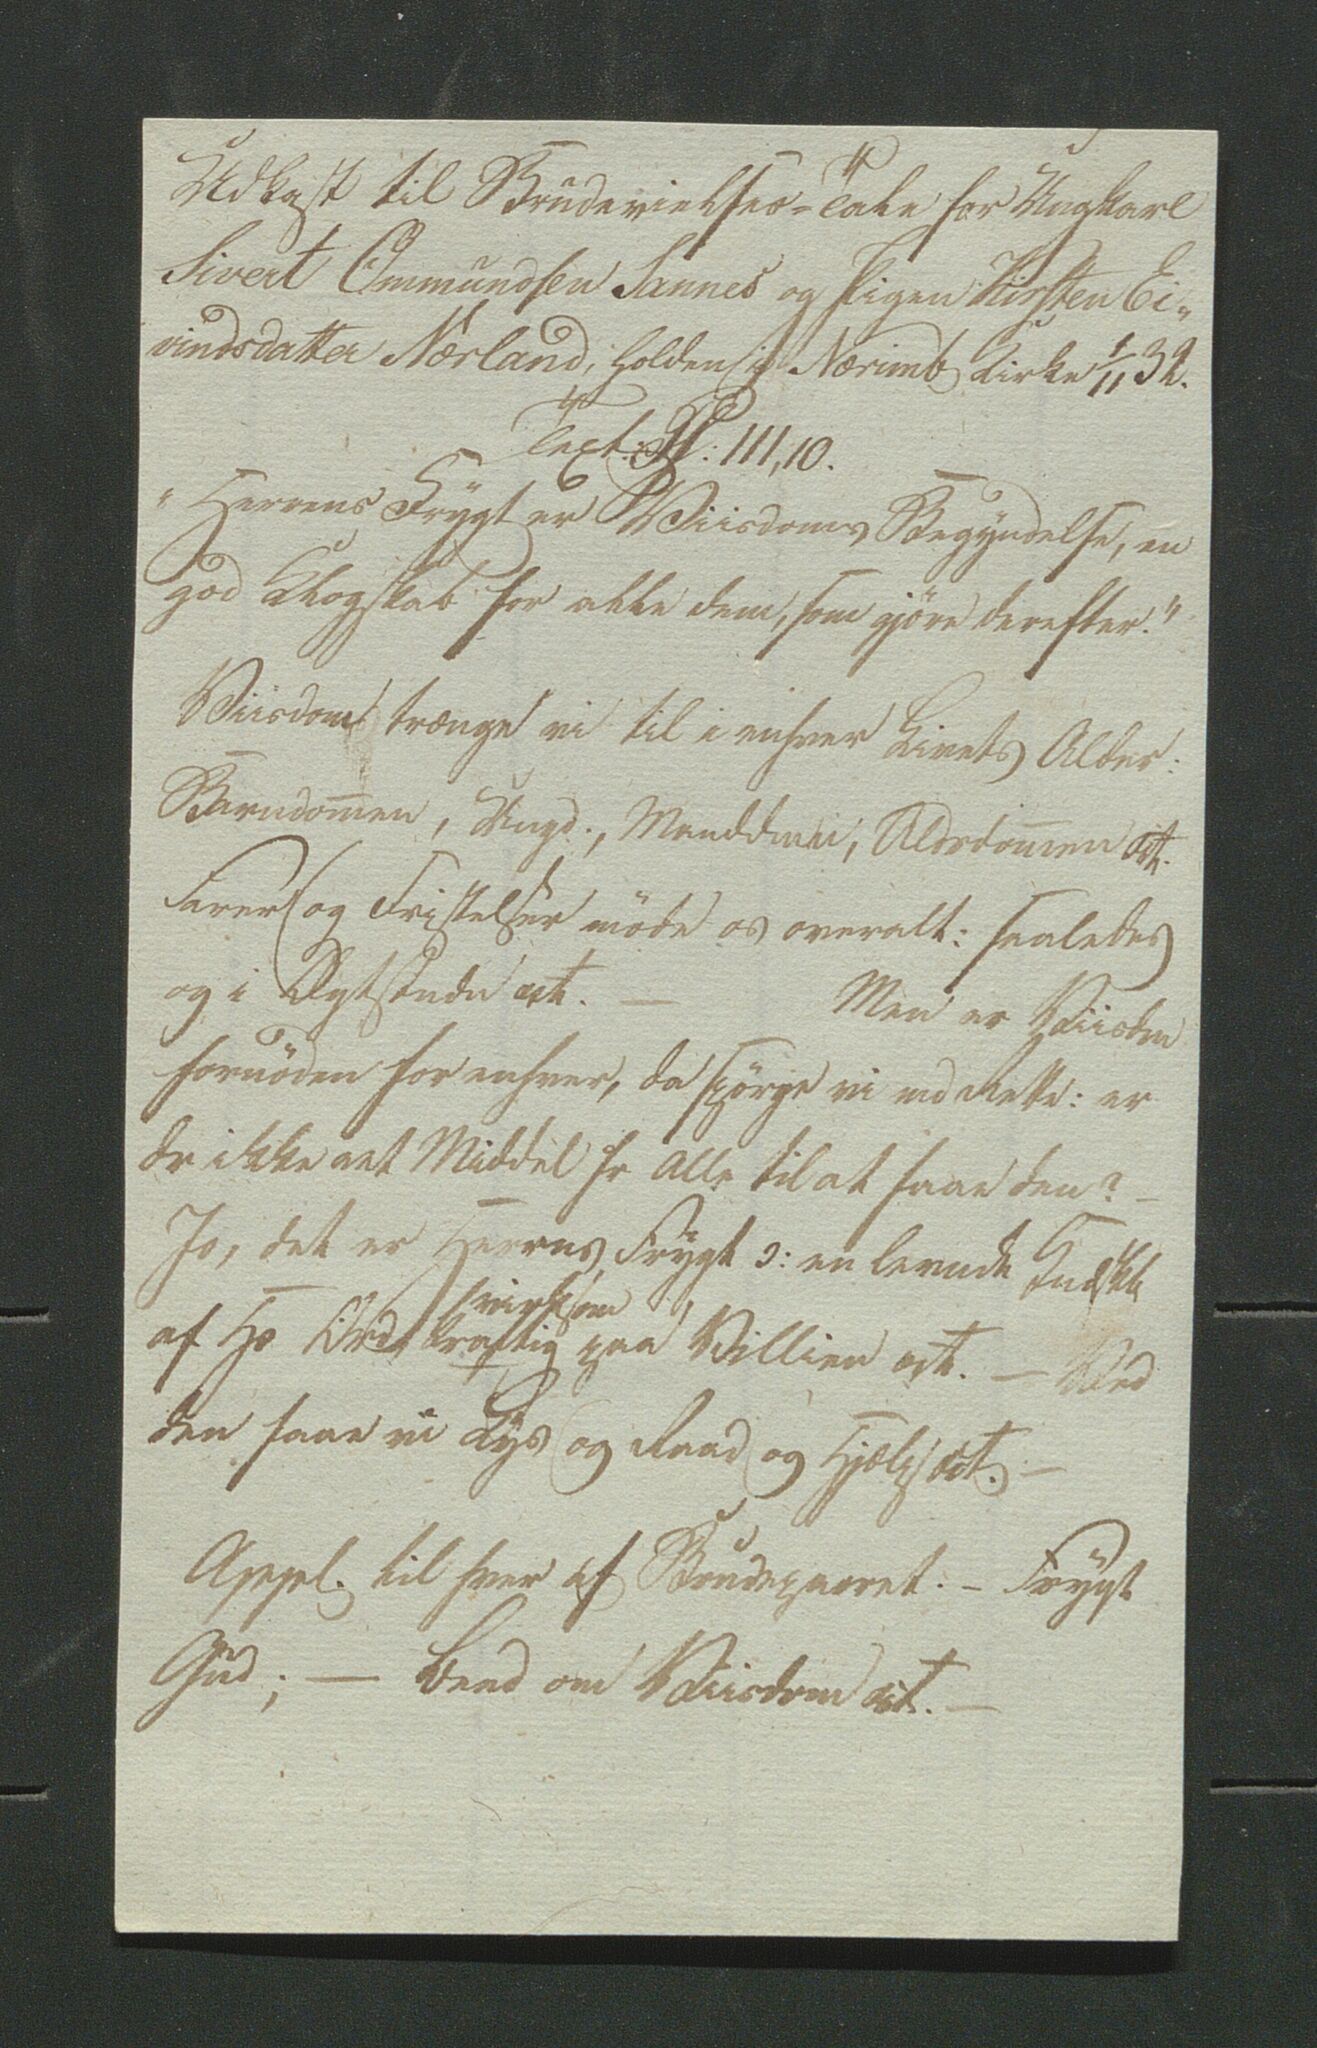 Udkast til Brudevielses-Tale for Ungkarl
Sivert Ommundsen Sannes og Pigen Kirsten Ei-
vindsdatter Nærland, holden i Nærimb Kirke 1/11 32.
Text: Ps: 111,10.
"Herrens Frygt er Viisdoms Begyndelse, en
god Klogskab for alle dem, som gjöre derefter."
Viisdom trænge vi til i enhver Livets Alder:
Barndom̅en, Ungd., Manddmen, Alderdom̅en etc.
Farer og Fristelser möde os overalt: saaledes
og i Ægtstnde etc. — Men er Viisdm
fornöden for enhver, da spörge vi md Rette: er
dr ikke net Middel fr Alle til at faae den? —
Jo, det er Herrns Frygt ɔ: en levnde
virksom
af Hs Ord, kraftig paa Villien etc. — Ved
den faae vi Lys og Raad og Hjælp etc. —
Appl. til hver af Brudeparret. — Frygt
Gud; — beed om Viisdom etc. —